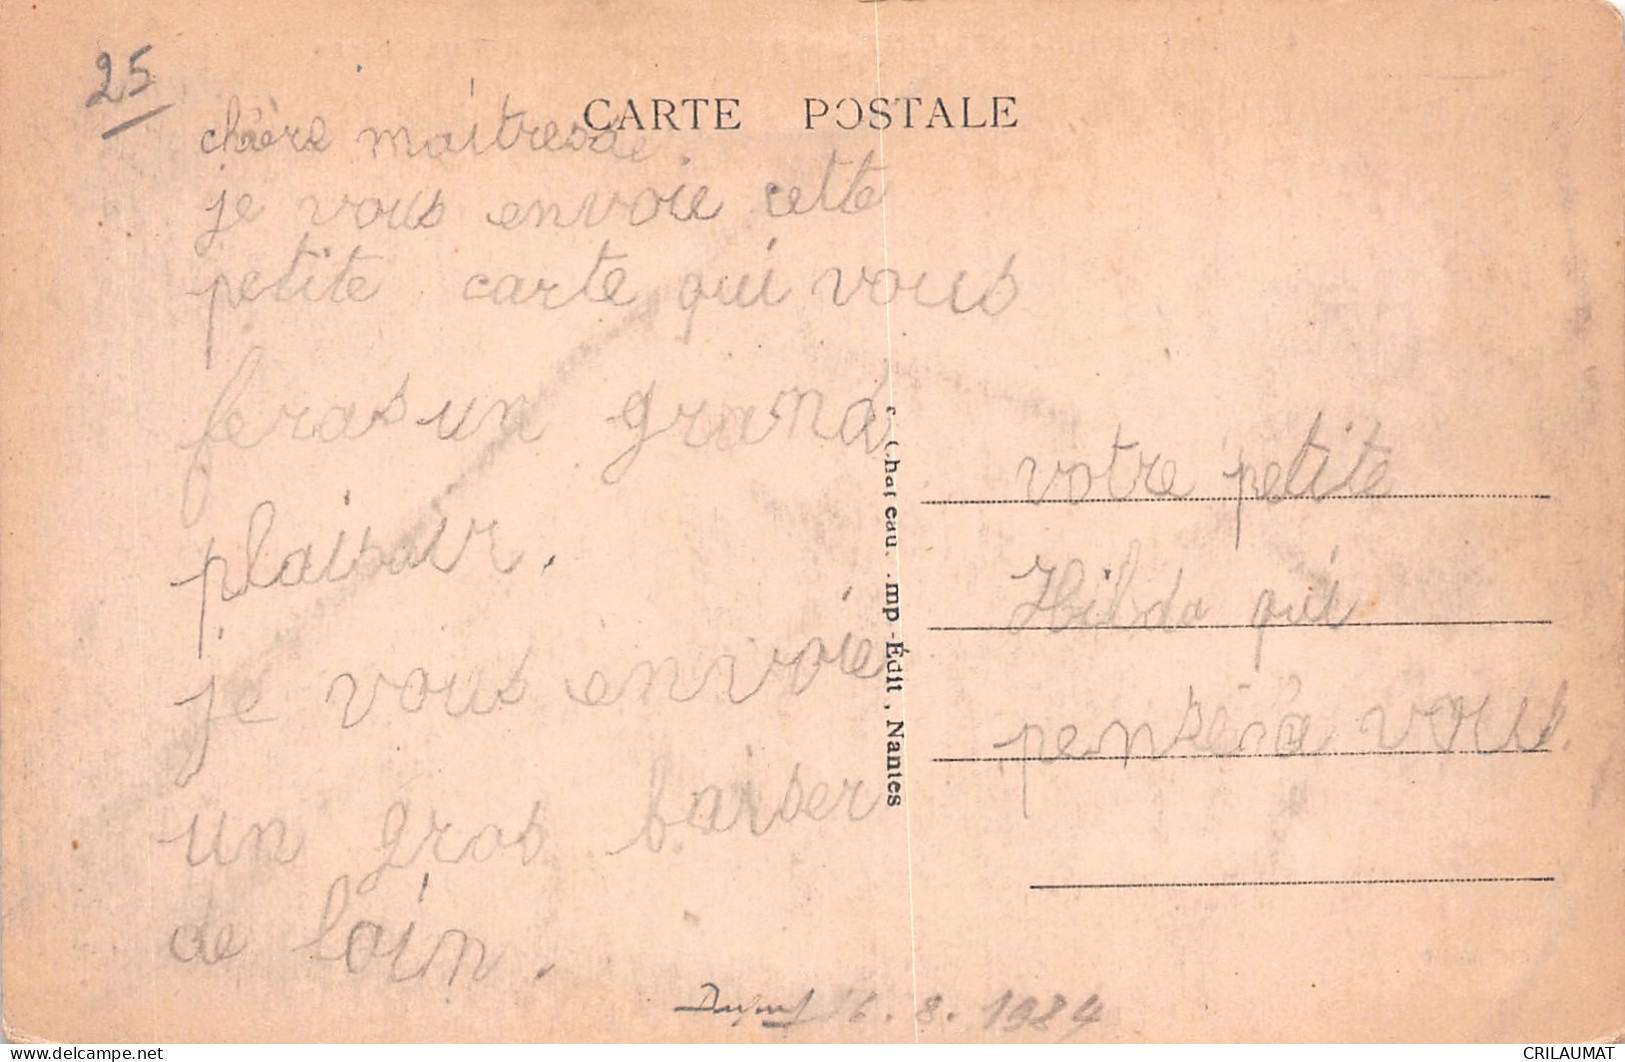 25
CARTE POSTALE
chère maitresse.
je vous envoie cette
petite carte qui vous
feras un grand
plaisair.
je vous envoie
un gros baiser
de loin.
votre petite
Hilda qui
pensera vous.
Chateau. Imp-Édit, Nantes
6.8.1984
CRILAUMAT